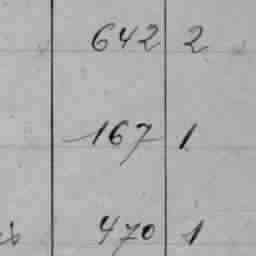 642 2
167 1
470 1